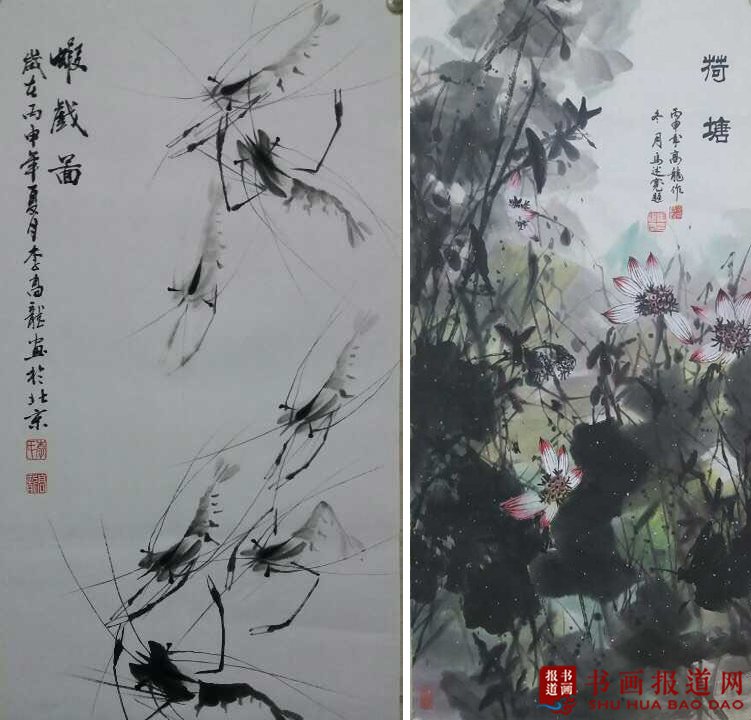 蝦戲圖
歲在丙申年夏月李高龍畫於北京
荷塘
丙申李高龍作
冬月馬述寬題
报道 书画
书画报道网
SHU HUA BAO DAO